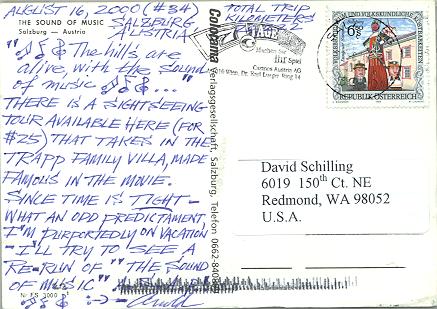 AUGUST 16, 2000 (#34)
SALZBURG
AUSTRIA
TOTAL TRIP
KILOMETERS
THE SOUND OF MUSIC
Salzburg — Austria
"The hills are
alive, with the sound
of music ..."
THERE IS A SIGHTSEEING
TOUR AVAILABLE HERE (FOR
$25) THAT TAKES IN THE
TRAPP FAMILY VILLA, MADE
FAMOUS IN THE MOVIE.
SINCE TIME IS TIGHT –
WHAT AN ODD PREDICTAMENT,
I'M PURPORTEDLY ON VACATION
– I'LL TRY TO SEE A
RE-RUN OF "THE SOUND
OF MUSIC"
Nr FS 3000
Colorama Verlagsgesellschaft, Salzburg, Telefon 0662-840899
Spiel
Austria AG
Wien, Dr. Karl Lueger Ring 14
UND VOLKSKUNDLICHE KOSTBARKEITEN
REPUBLIK ÖSTERREICH
David Schilling
6019 150th Ct. NE
Redmond, WA 98052
U.S.A.